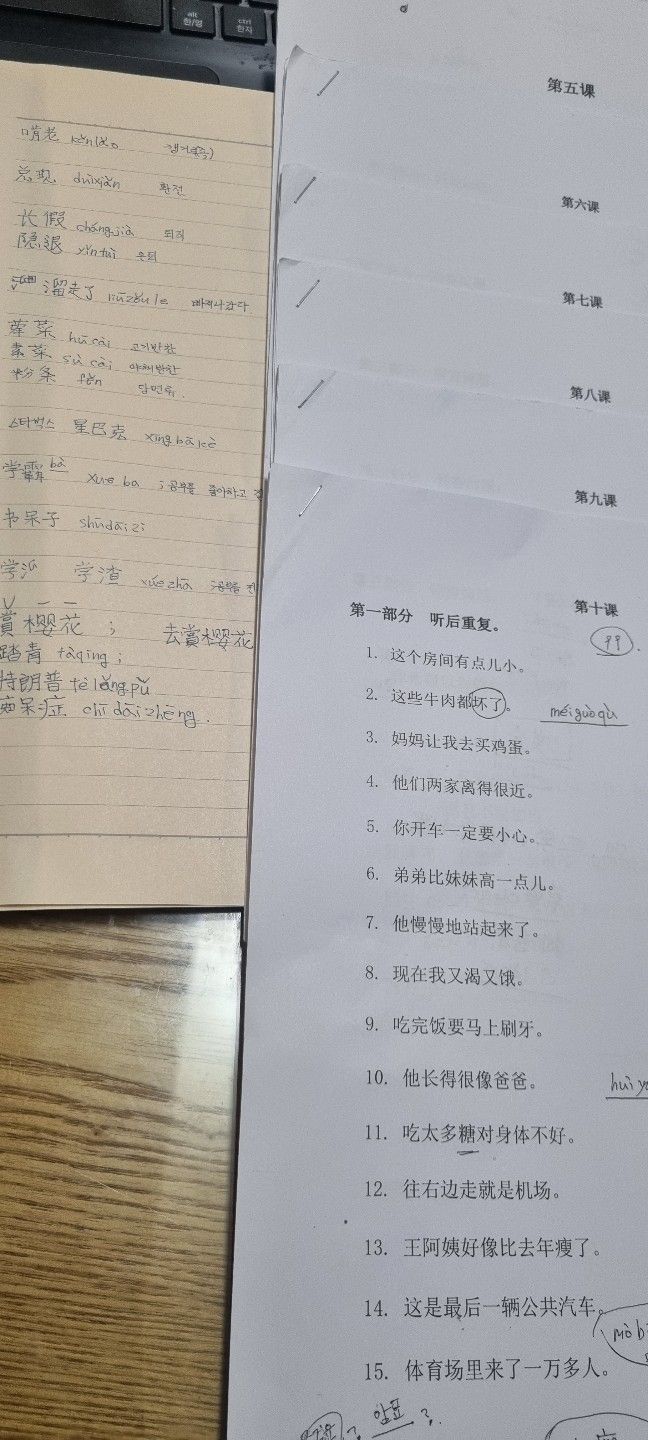 alt
한/영
ctrl
한자
啃老 kěnlǎo 캥거루(족)
兑现 duìxiàn 환전
长假 chángjià 퇴직
隐退 yǐntuì 은퇴
溜走了 liūzǒule 빠져나갔다
荤菜 hūcài 고기반찬
素菜 sùcài 야채반찬
粉条 fěn 당면류.
스타벅스 星巴克 xīngbākè
学霸 bà xueba ; 공부를 좋아하고
书呆子 shūdāizi
学渣 xuézhā 공부를
赏樱花 ; 去赏樱花
踏青 tàqīng ;
特朗普 tèlǎngpǔ
痴呆症 chīdāizhēng.
第五课
第六课
第七课
第八课
第九课
第十课
第一部分 听后重复。
1. 这个房间有点儿小。
2. 这些牛肉都坏了。 méiguòqù
3. 妈妈让我去买鸡蛋。
4. 他们两家离得很近。
5. 你开车一定要小心。
6. 弟弟比妹妹高一点儿。
7. 他慢慢地站起来了。
8. 现在我又渴又饿。
9. 吃完饭要马上刷牙。
10. 他长得很像爸爸。
11. 吃太多糖对身体不好。
12. 往右边走就是机场。
13. 王阿姨好像比去年瘦了。
14. 这是最后一辆公共汽车。
15. 体育场里来了一万多人。
암표 ?